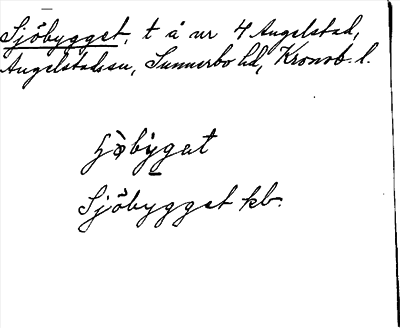 Sjöbygget, t å nr 4 Angelstad,
Angelstads sn, Sunnerbo hd, Kronob. l.
Sjöbygget kb.